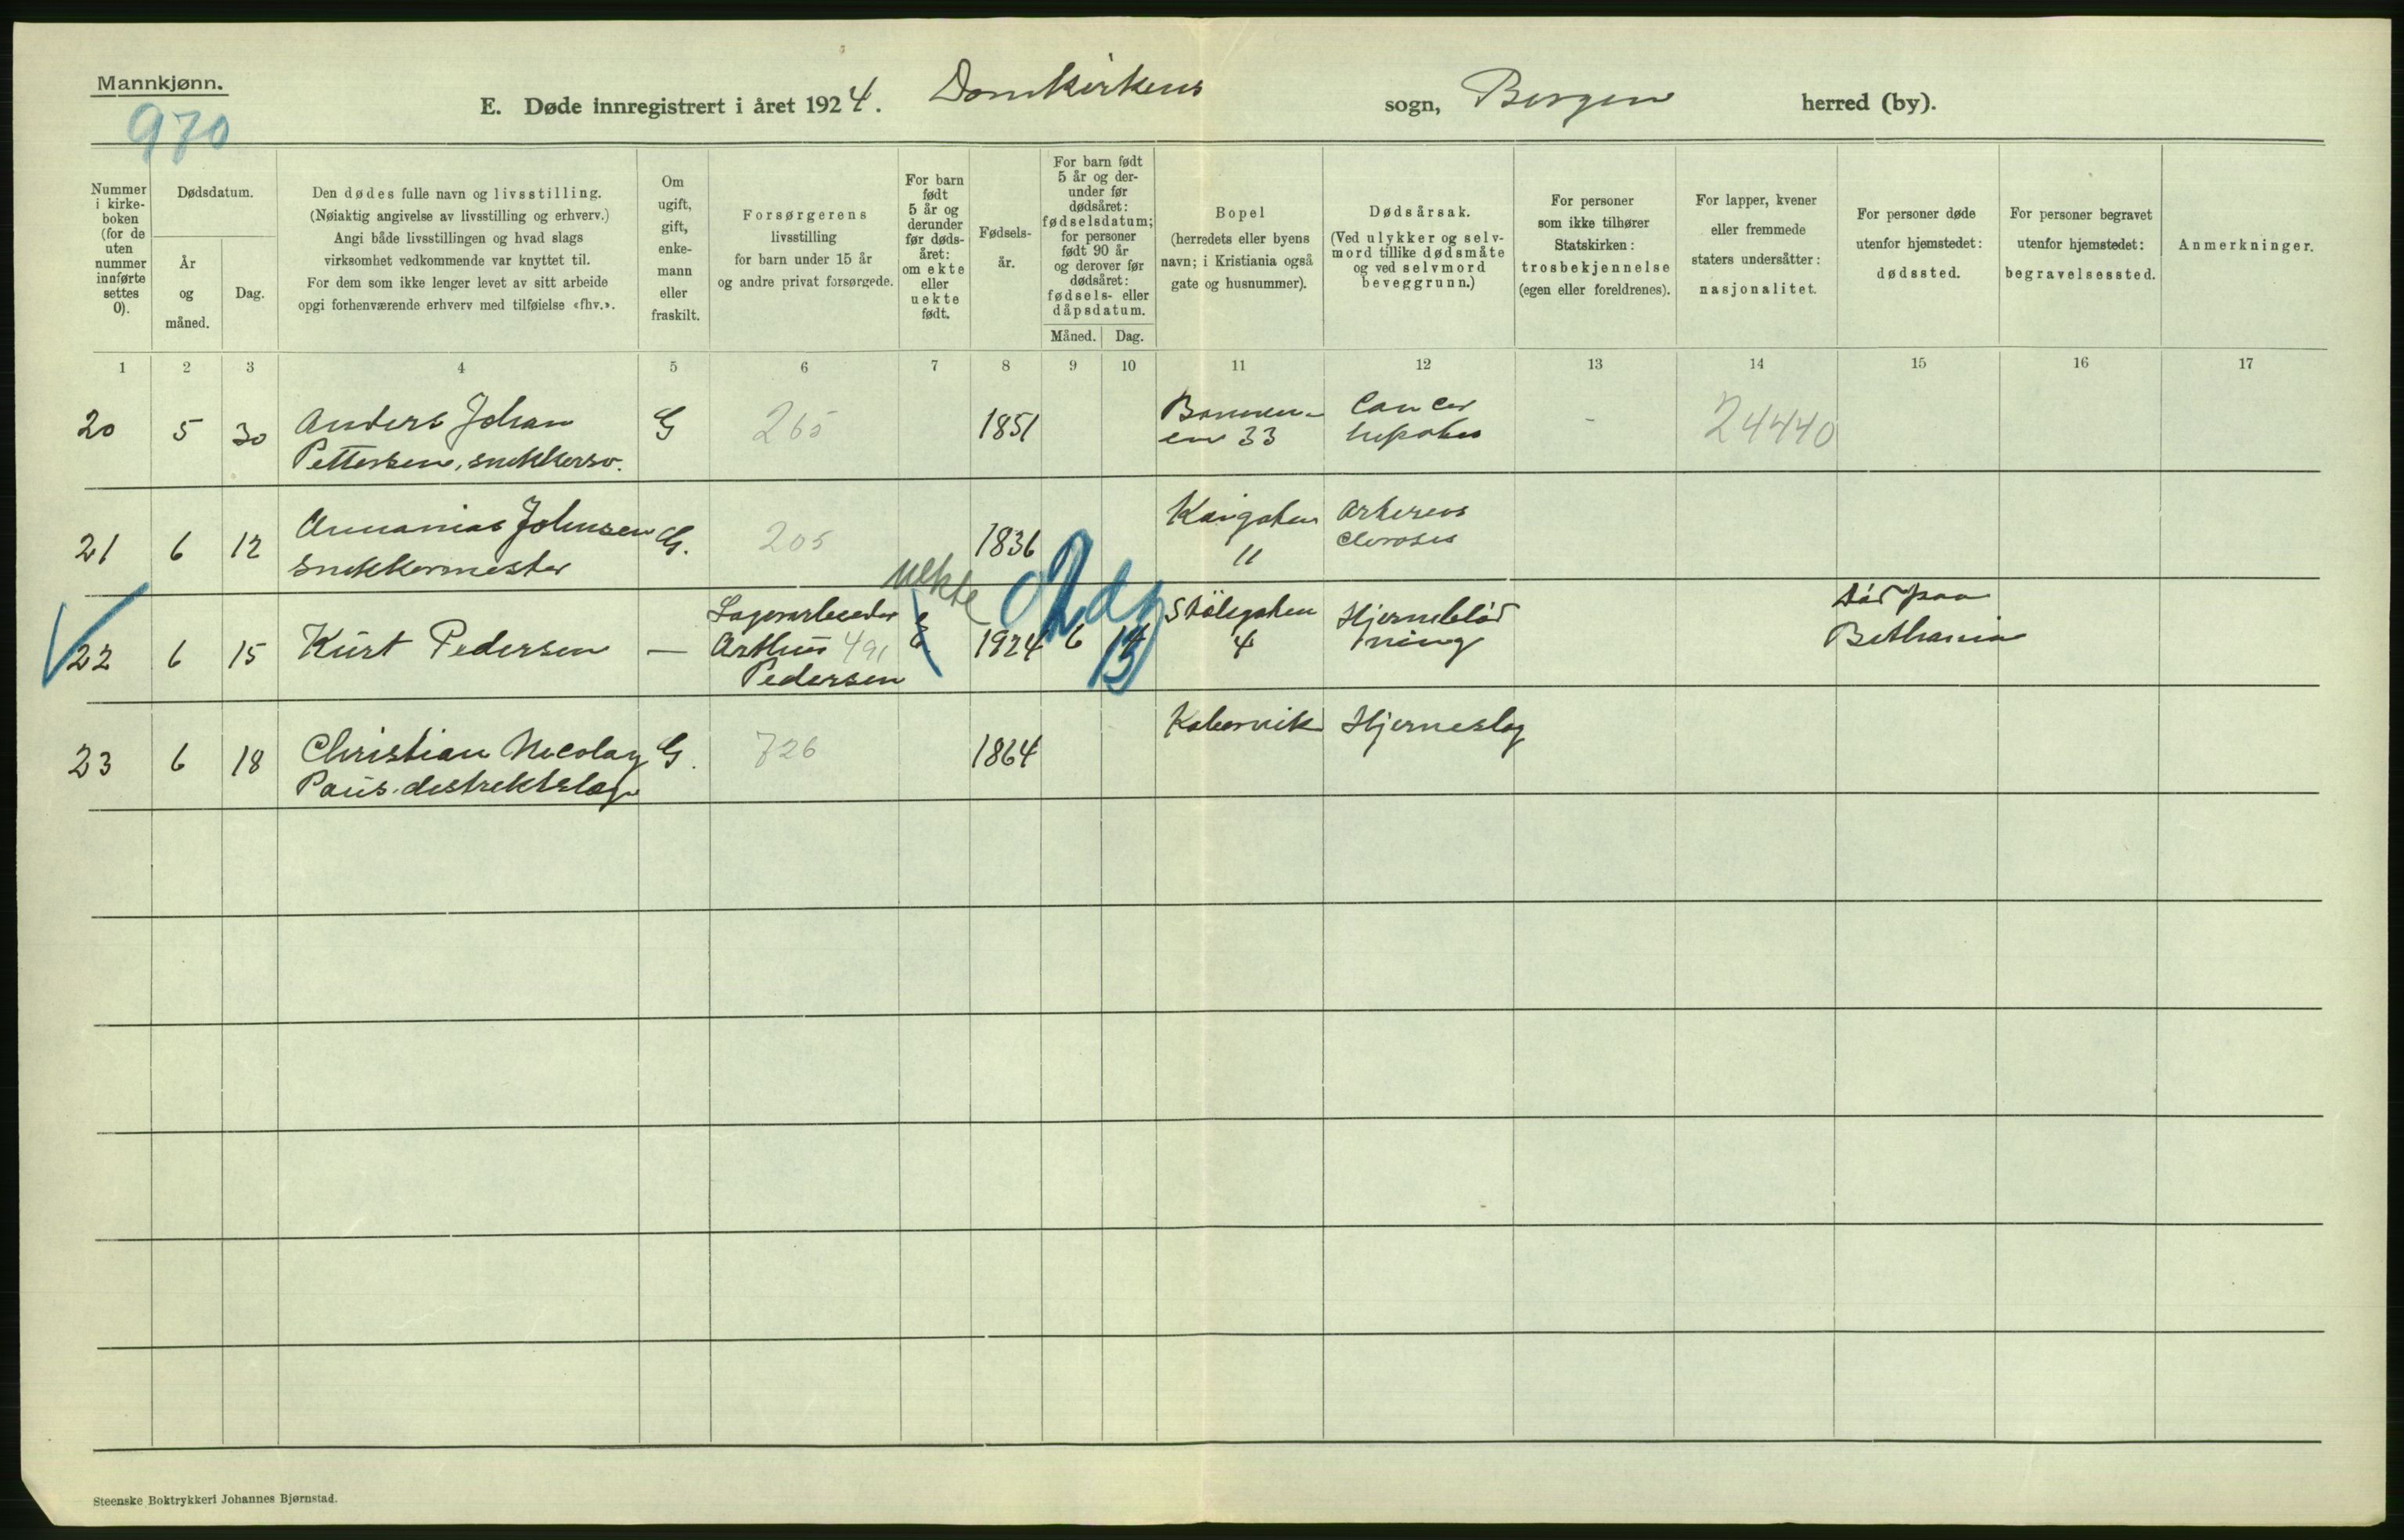 Mannkjønn.
970
E. Døde innregistrert i året 1924. Domkirkens sogn, Bergen herred (by).
Nummer i kirke- boken (for de uten nummer innførte settes 0).
Dødsdatum.
År og måned.
Dag.
Den dødes fulle navn og livsstilling.
(Nøiaktig angivelse av livsstilling og erhverv.)
Angi både livsstillingen og hvad slags
virksomhet vedkommende var knyttet til.
For dem som ikke lenger levet av sitt arbeide
opgi forhenværende erhverv med tilføielse «fhv.».
Om ugift, gift, enke- mann eller fraskilt.
Forsørgerens
livsstilling
for barn under 15 år
og andre privat forsørgede.
For barn født 5 år og derunder før døds- året: om ekte eller uekte født.
Fødsels- år.
For barn født 5 år og der- under før dødsåret: fødselsdatum; for personer født 90 år og derover før dødsåret: fødsels- eller dåpsdatum.
Måned. Dag.
Bopel
(herredets eller byens
navn; i Kristiania også
gate og husnummer).
Dødsårsak.
(Ved ulykker og selv-
mord tillike dødsmåte
og ved selvmord
beveggrunn.)
For personer
som ikke tilhører
Statskirken:
trosbekjennelse
(egen eller foreldrenes).
For lapper, kvener
eller fremmede
staters undersåtter:
nasjonalitet.
For personer døde
utenfor hjemstedet:
dødssted.
For personer begravet
utenfor hjemstedet:
begravelsessted.
Anmerkninger.
1 2 3 4 5 6 7 8 9 10 11 12 13 14 15 16 17
20 5 30 Anders Johan G 265 1851 Cancer - 24440
Pettersen, snekkersv. en 33 hepatis
21 6 12 Annanias Johnsen G. 205 1836 Kaigaten Arterios
snekkermester 11 clerosis
uekte 2 dg
22 6 15 Kurt Pedersen — Lagerarbeider E 1924 6 14 Stölegaten Hjerneblød död paa
Arthur 491 13 4 ning Bethania
Pedersen
23 6 18 Christian Nicolay G. 726 1864 Kopervik Hjerneslag
Paus. distriktslæge
Steenske Boktrykkeri Johannes Bjørnstad.